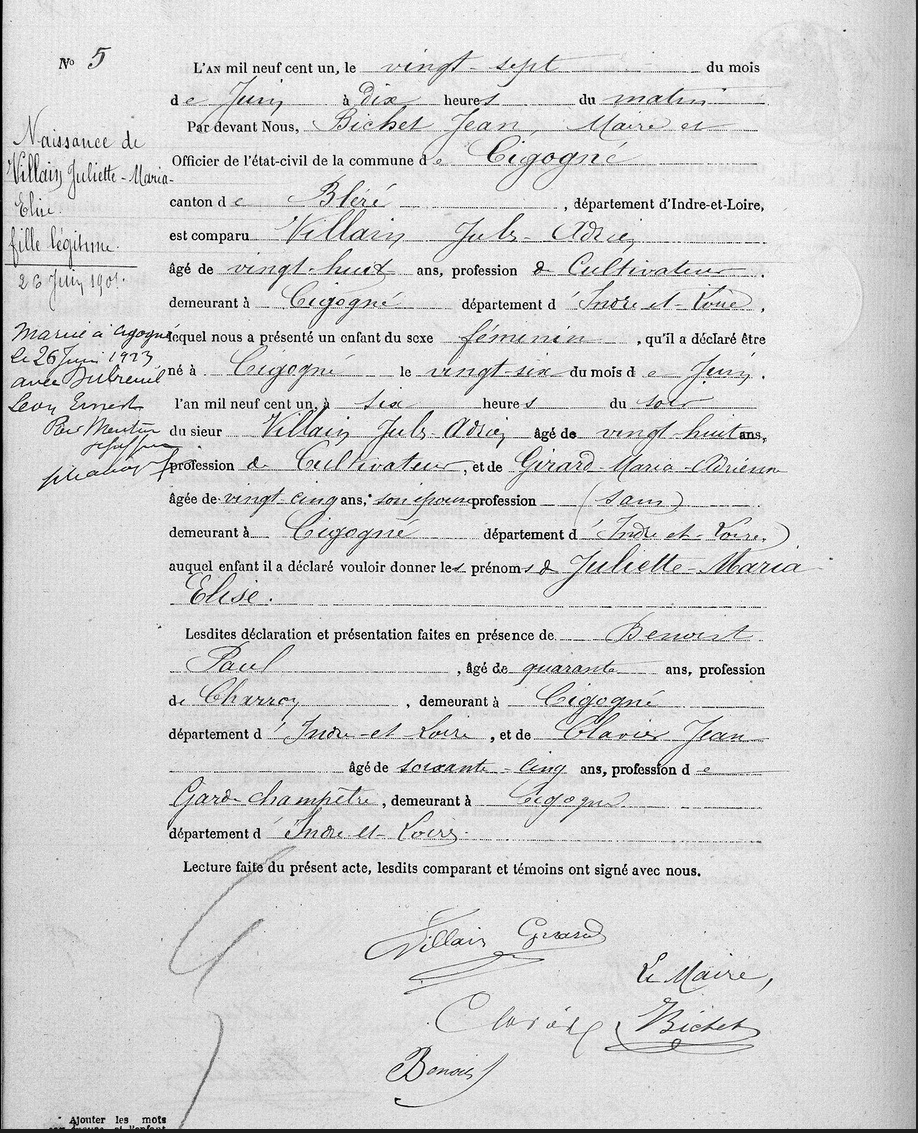 No 5
Naissance de
Villain Juliette-Maria-
Elise.
fille légitime.
26 Juin 1901.
Mariée à Cigogné
le 26 Juin 1923
avec Dubreuil
Léon Ernest
Pour Mention
L'AN mil neuf cent un, le vingt-sept du mois
de Juin à dix heures du matin
Par devant Nous, Bichet Jean, Maire et
Officier de l'état-civil de la commune de Cigogné
canton de Bléré, département d'Indre-et-Loire,
est comparu Villain Jules-Adrien
âgé de vingt-huit ans, profession de Cultivateur.
demeurant à Cigogné département d'Indre-et-Loire,
lequel nous a présenté un enfant du sexe féminin, qu'il a déclaré être
né à Cigogné le vingt-six du mois de Juin.
l'an mil neuf cent un, à six heures du soir
du sieur Villain Jules-Adrien, âgé de vingt-huit ans,
profession de Cultivateur, et de Girard Maria-Adrienne
âgée de vingt-cinq ans, son épouse profession (sans)
demeurant à Cigogné département d'Indre-et-Loire,
auquel enfant il a déclaré vouloir donner les prénoms de Juliette-Maria
Elise.
Lesdites déclaration et présentation faites en présence de Benoist
Paul, âgé de quarante ans, profession
de Charron, demeurant à Cigogné
département d'Indre-et-Loire, et de Clavier Jean
âgé de soixante-cinq ans, profession de
Garde-champêtre, demeurant à Cigogné
département d'Indre-et-Loire.
Lecture faite du présent acte, lesdits comparant et témoins ont signé avec nous.
Villain Girard
Le Maire,
Clavier Bichet
Benoist
Ajouter les mots